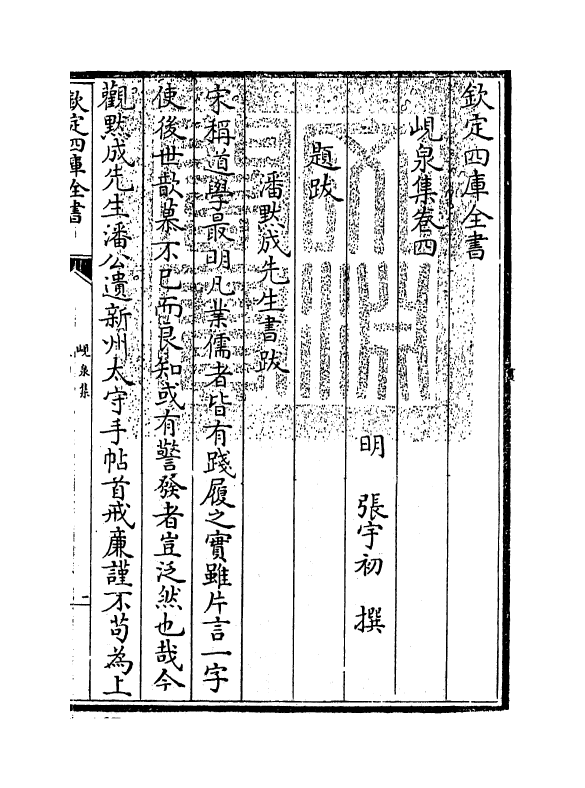 欽定四庫全書
峴泉集卷四
明 張宇初 撰
題跋
潘默成先生書跋
宋稱道學最明凡業儒者皆有踐履之實雖片言一字
使後世歆慕不已而良知或有警發者豈泛然也哉今
觀默成先生潘公遺新州太守手帖首戒廉謹不苟為上
欽定四庫全書
峴泉集
一